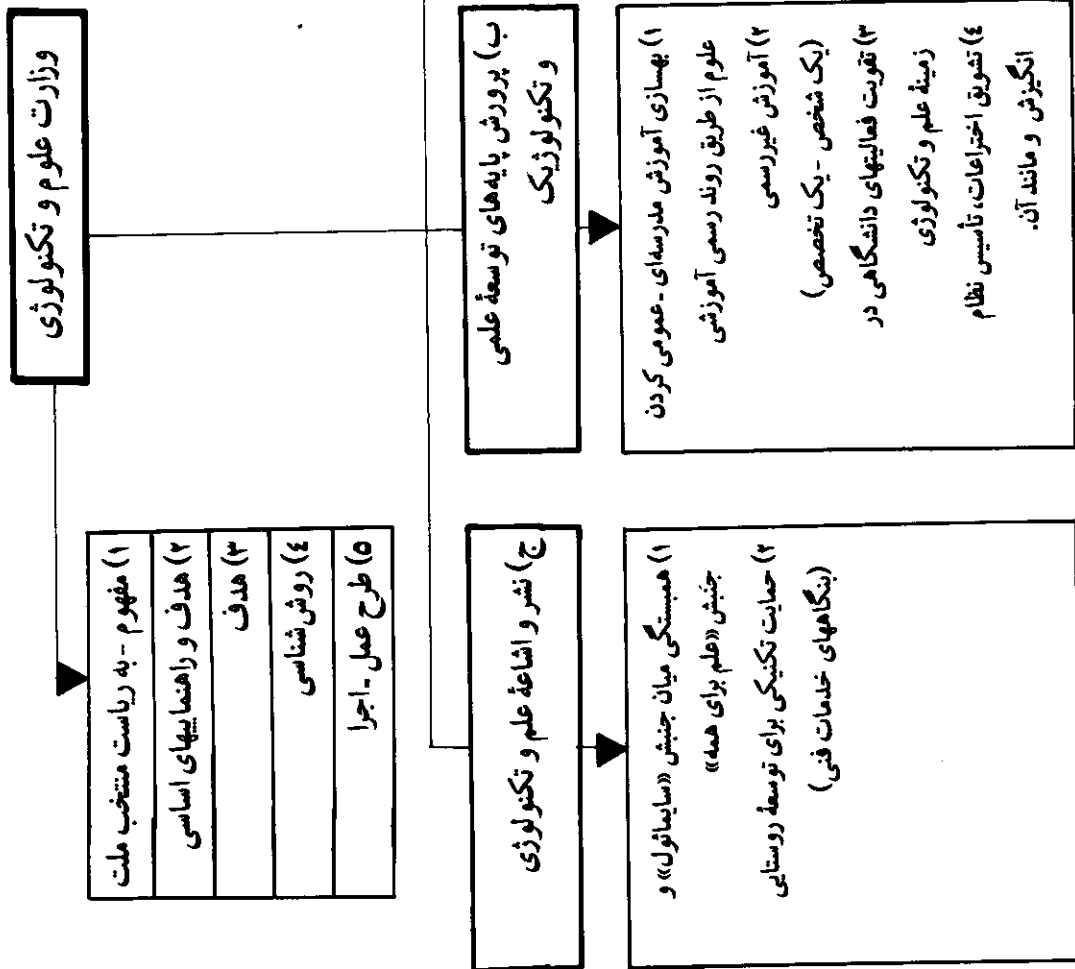 وزارت علوم و تکنولوژی
۱) مفهوم - به ریاست منتخب ملت
۲) هدف و راهنماییهای اساسی
۳) هدف
۴) روش‌شناسی
۵) طرح عمل - اجرا
ب) پرورش پایه‌های توسعهٔ علمی
و تکنولوژیک
۱) بهسازی آموزش مدرسه‌ای - عمومی کردن
علوم از طریق روند رسمی آموزشی
۲) آموزش غیررسمی
(یک شخص - یک تخصص)
۳) تقویت فعالیتهای دانشگاهی در
زمینهٔ علم و تکنولوژی
۴) تشویق اختراعات، تأسیس نظام
انگیزش و مانند آن.
ج) نشر و اشاعهٔ علم و تکنولوژی
۱) همبستگی میان جنبش «سایمائول» و
جنبش «علم برای همه»
۲) حمایت تکنیکی برای توسعهٔ روستایی
(بنگاههای خدمات فنی)